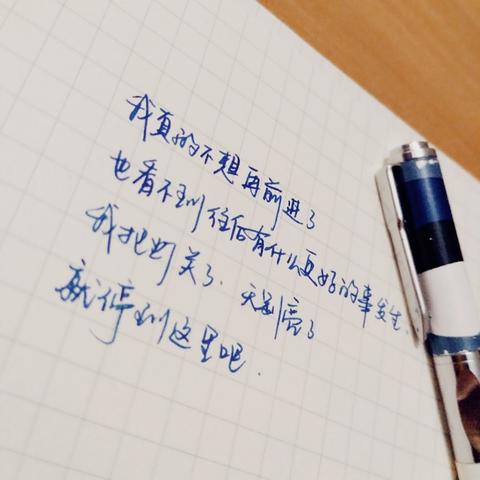 我真的不想再前进了
也看不到往后有什么更好的事发生.
我把灯关了. 天别亮了
就停到这里吧.